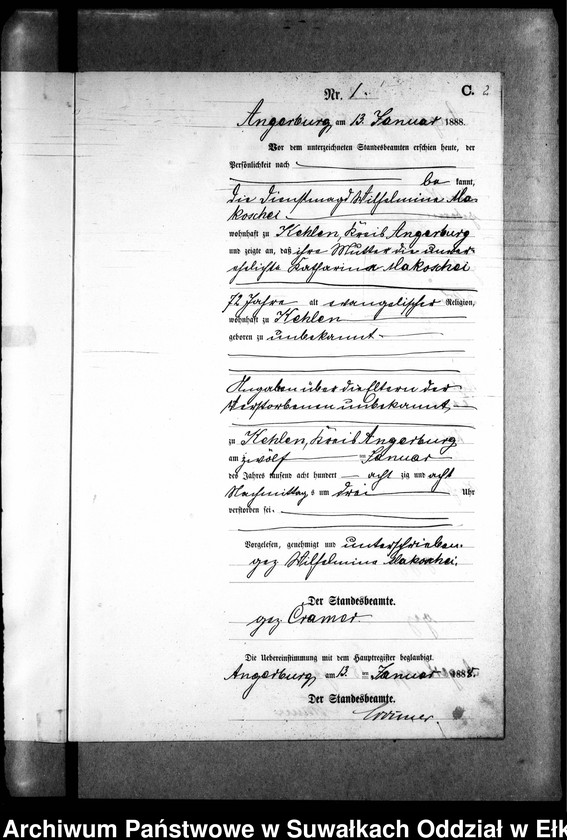 Nr. 1.
C. 2
Angerburg am 13. Januar 1888.
Vor dem unterzeichneten Standesbeamten erschien heute, der
Persönlichkeit nach
be kannt,
die Dienstmagd Wilhelmine Ma-
koschei
wohnhaft zu Kehlen, Kreis Angerburg
und zeigte an, daß ihre Mutter die unver-
ehelichte Katharina Makoschei
72 Jahre alt evangelischer Religion,
wohnhaft zu Kehlen
geboren zu unbekannt
Angaben über die Eltern der
Verstorbenen unbekannt,
zu Kehlen, Kreis Angerburg
am zwölf ten Januar
des Jahres tausend acht hundert acht zig und acht
Nachmittags um drei Uhr
verstorben sei.
Vorgelesen, genehmigt und unterschrieben.
gez Wilhelmine Makoschei.
Der Standesbeamte.
gez Cramer
Die Uebereinstimmung mit dem Hauptregister beglaubigt.
Angerburg, am 13. ten Januar 1888.
Der Standesbeamte.
Cramer.
Archiwum Państwowe w Suwałkach Oddział w Ełk